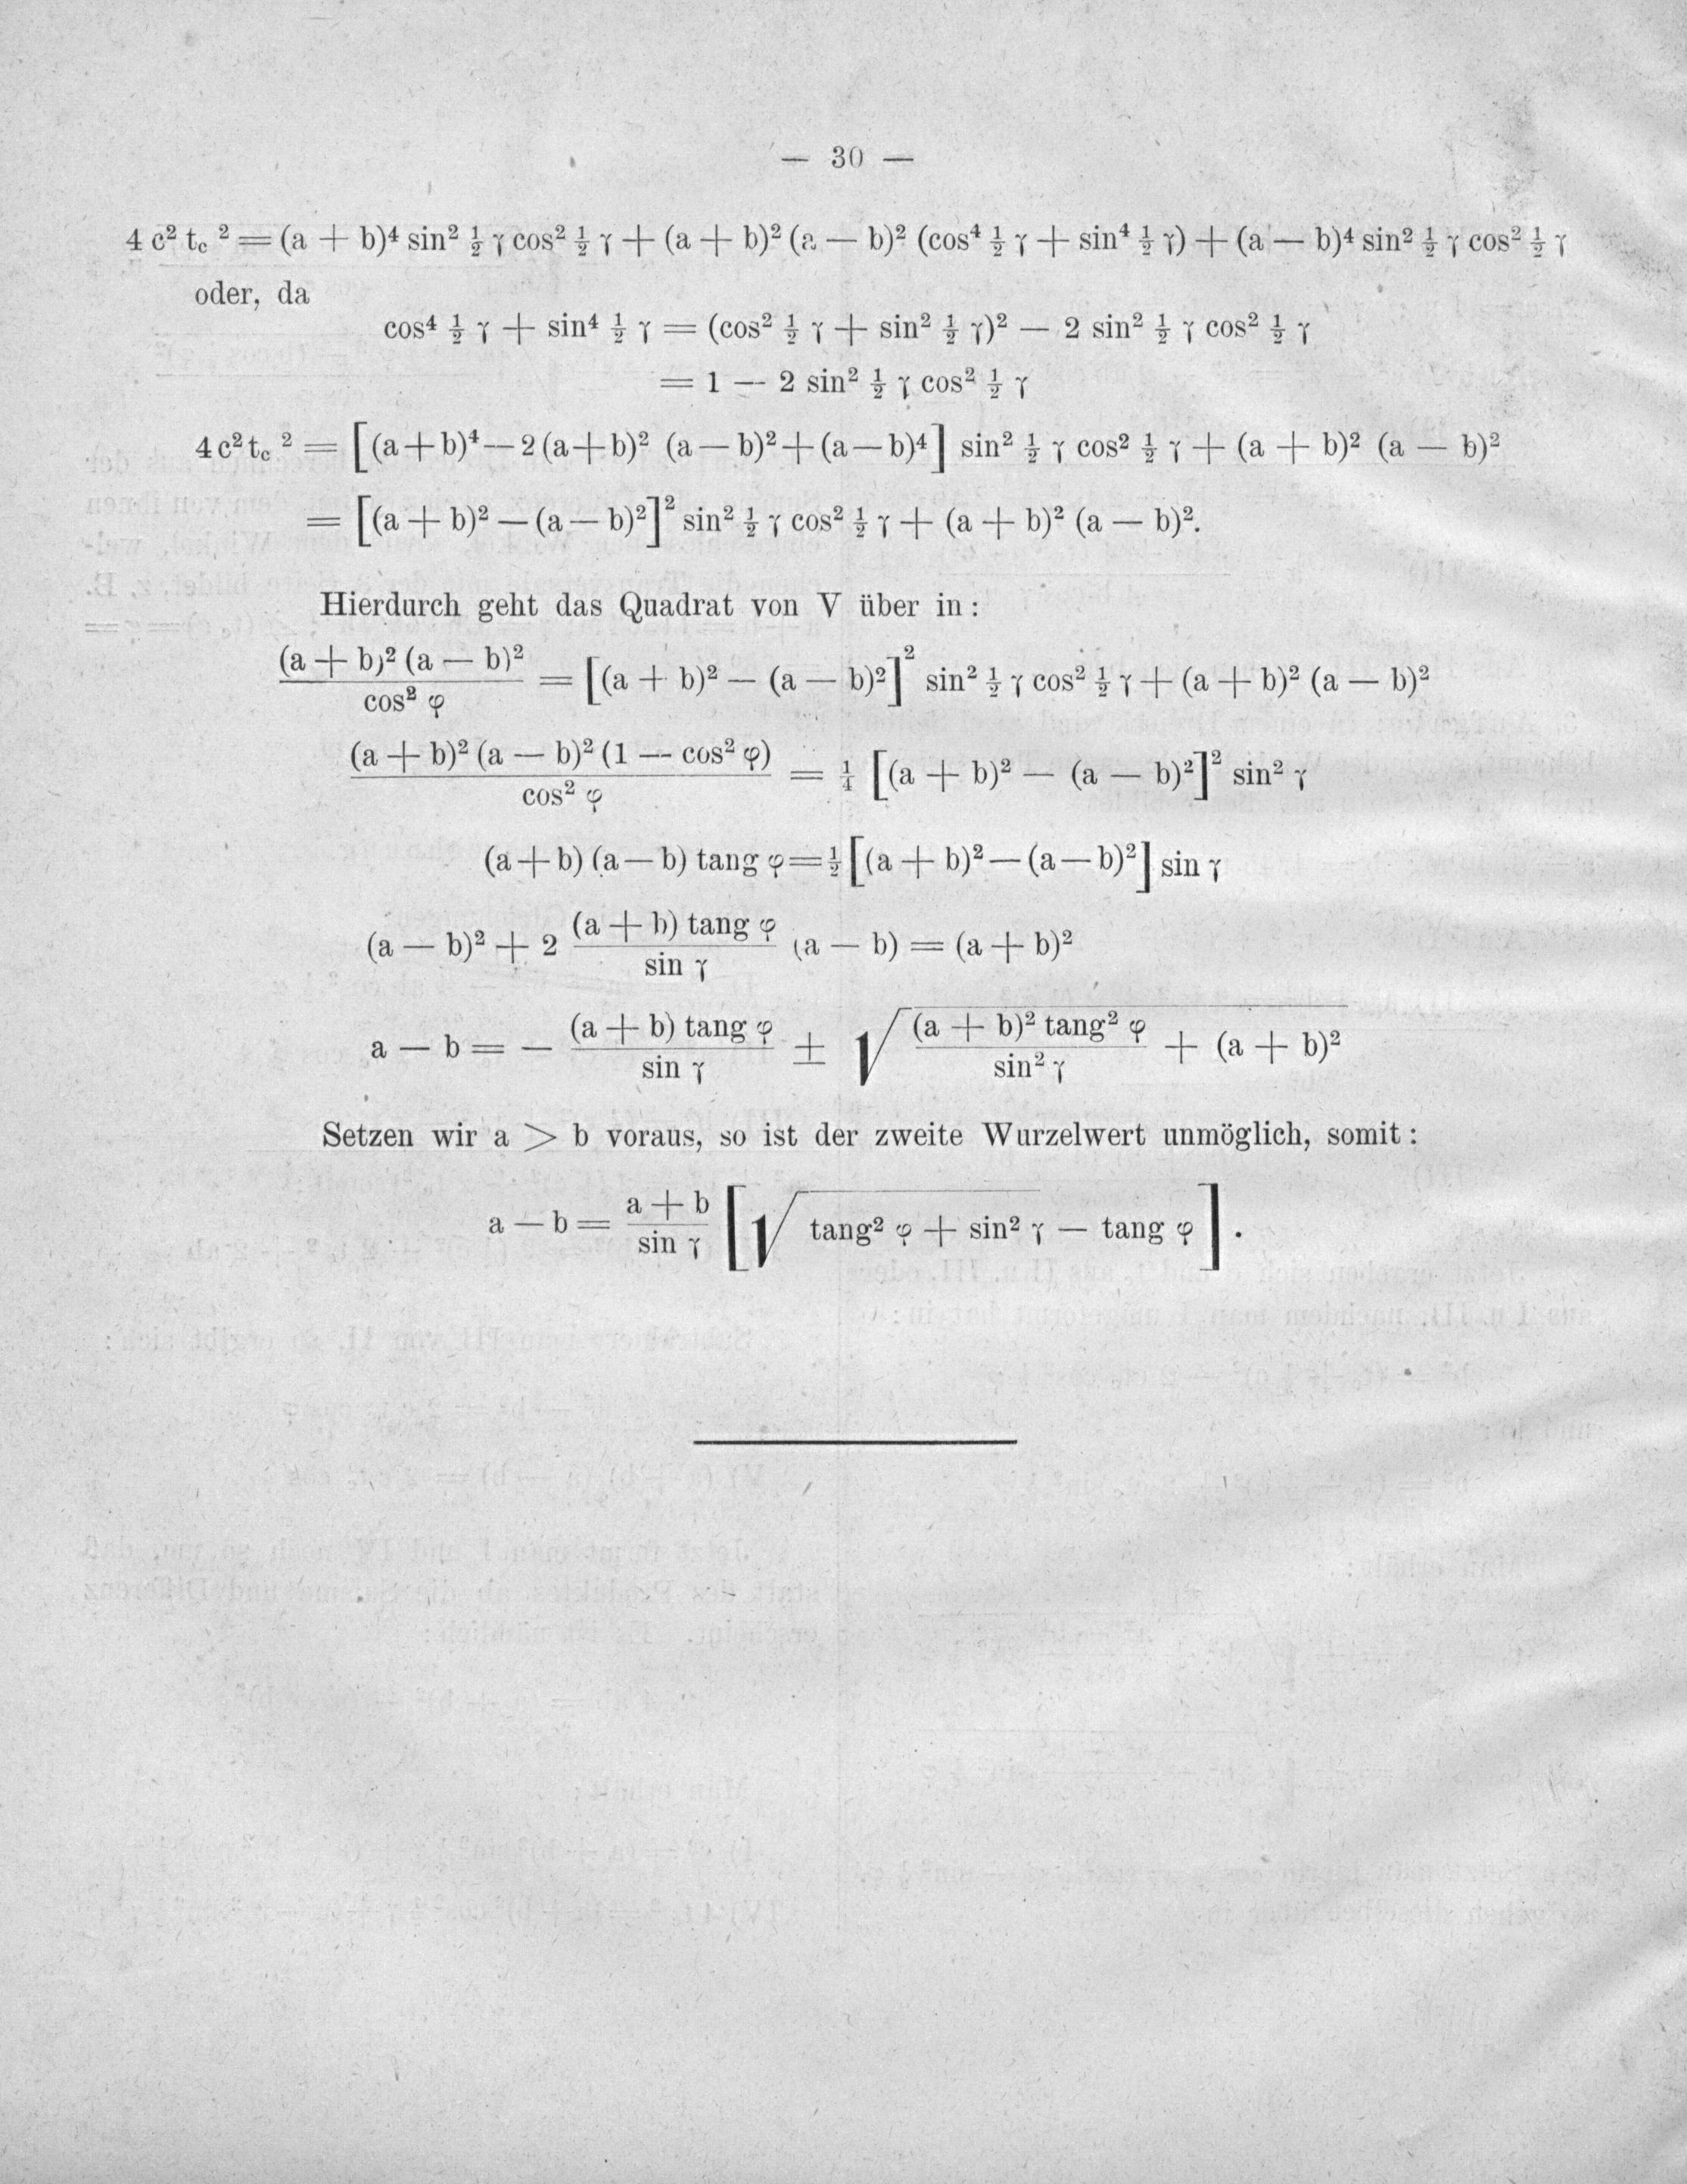 — 30 —
4 c² t_c ² = (a + b)⁴ sin² ½ γ cos² ½ γ + (a + b)² (a — b)² (cos⁴ ½ γ + sin⁴ ½ γ) + (a — b)⁴ sin² ½ γ cos² ½ γ
oder, da
cos⁴ ½ γ + sin⁴ ½ γ = (cos² ½ γ + sin² ½ γ)² — 2 sin² ½ γ cos² ½ γ
= 1 — 2 sin² ½ γ cos² ½ γ
4 c² t_c ² = [(a + b)⁴ — 2 (a + b)² (a — b)² + (a — b)⁴] sin² ½ γ cos² ½ γ + (a + b)² (a — b)²
= [(a + b)² — (a — b)²]² sin² ½ γ cos² ½ γ + (a + b)² (a — b)².
Hierdurch geht das Quadrat von V über in :
(a + b)² (a — b)² / cos² φ = [(a + b)² — (a — b)²]² sin² ½ γ cos² ½ γ + (a + b)² (a — b)²
(a + b)² (a — b)² (1 — cos² φ) / cos² φ = ¼ [(a + b)² — (a — b)²]² sin² γ
(a + b) (a — b) tang φ = ½ [(a + b)² — (a — b)²] sin γ
(a — b)² + 2 (a + b) tang φ / sin γ (a — b) = (a + b)²
a — b = — (a + b) tang φ / sin γ ± √ (a + b)² tang² φ / sin² γ + (a + b)²
Setzen wir a > b voraus, so ist der zweite Wurzelwert unmöglich, somit :
a — b = a + b / sin γ [√ tang² φ + sin² γ — tang φ] .